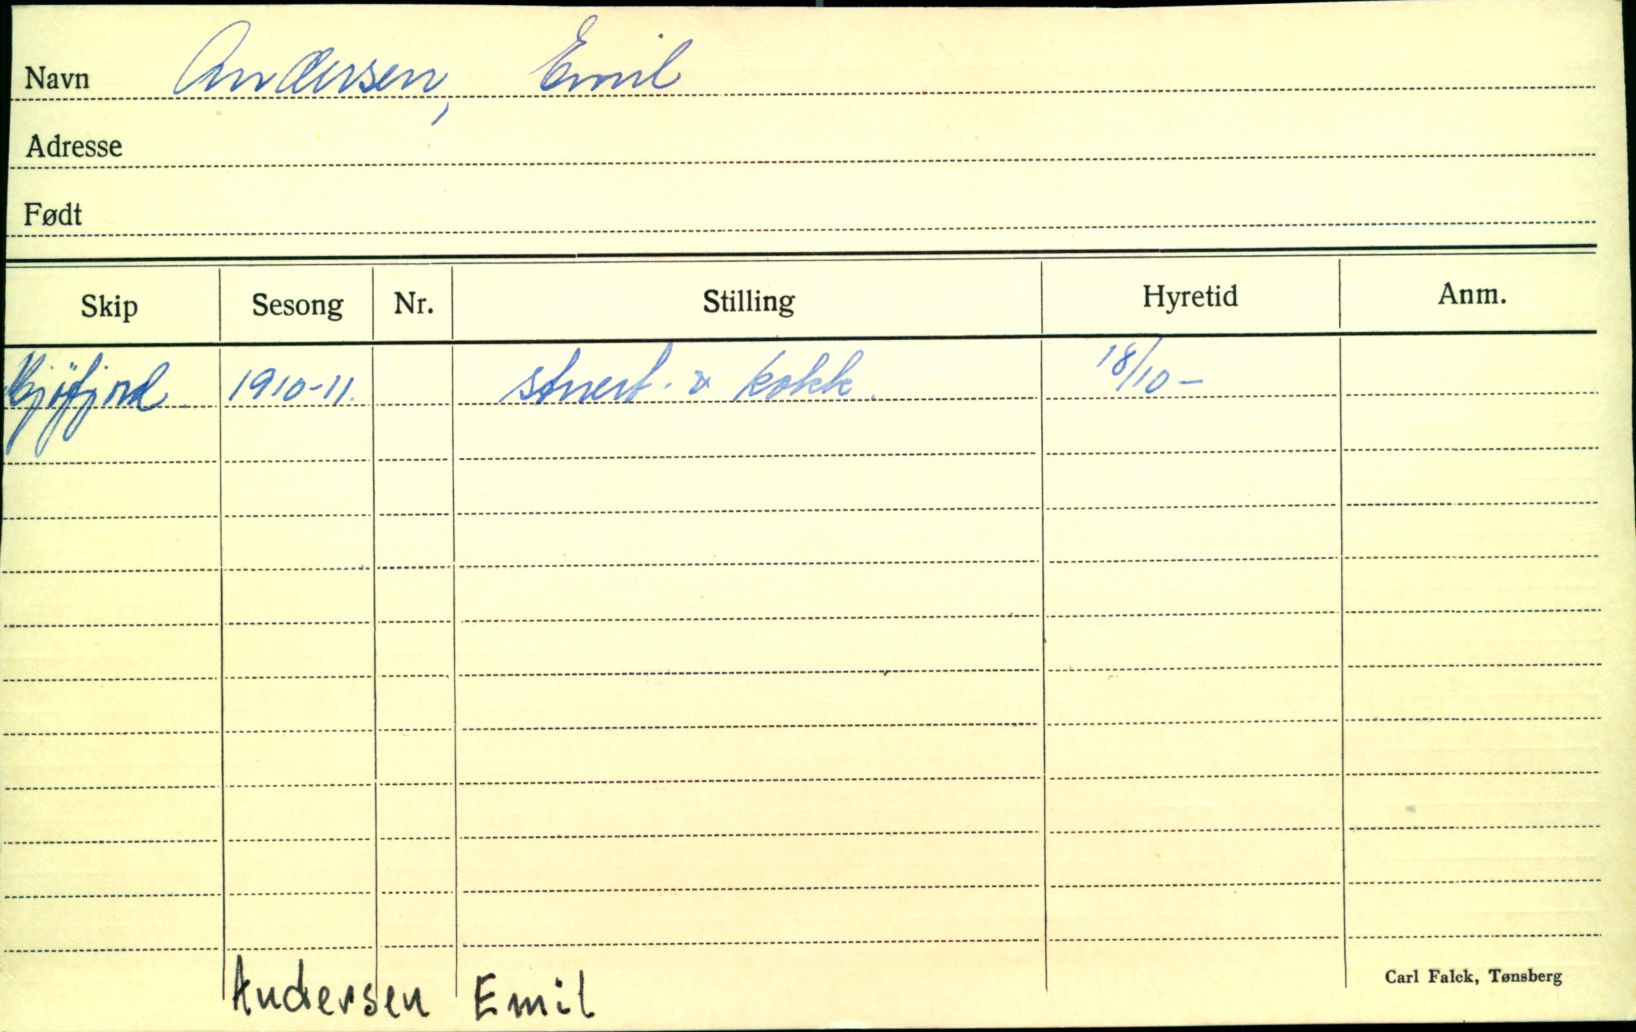 Navn Andersen, Emil
Adresse
Født
Skip Sesong Nr. Stilling Hyretid Anm.
Bjöfjord 1910-11. stuert. & kokk. 18/10-
Andersen Emil
Carl Falck, Tønsberg